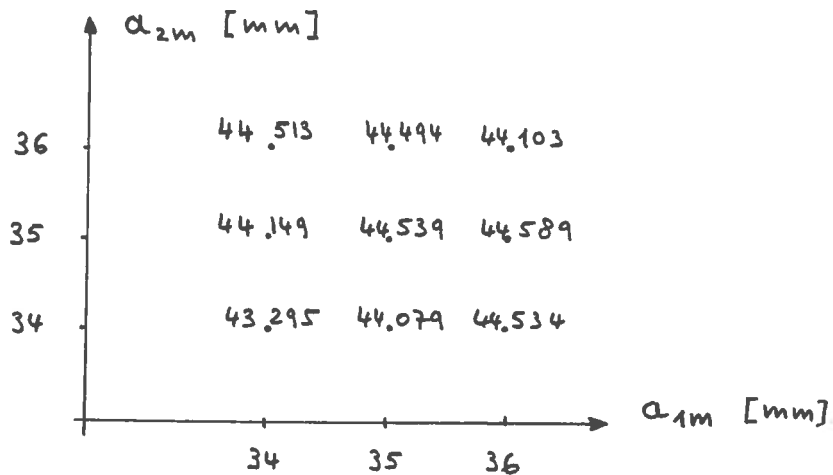 a2m [mm]
36 44.513 44.494 44.103
35 44.149 44.539 44.589
34 43.295 44.079 44.534
a1m [mm]
34 35 36